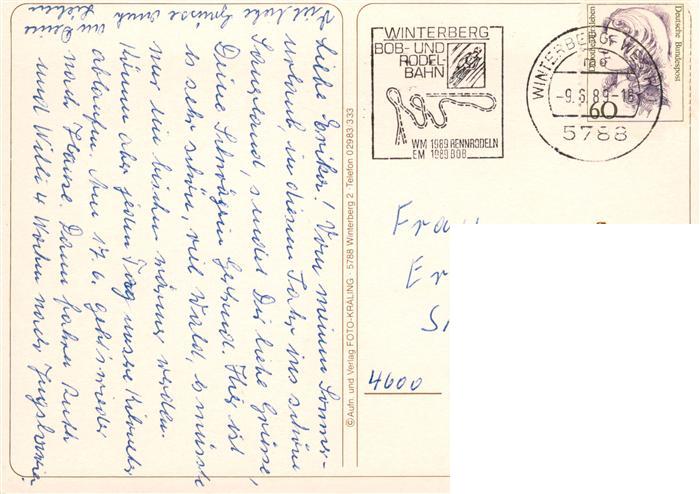 Liebe Erika! Von meinem Sommer-
urlaub in diesem Jahr ins schöne
Sauerland, sendet Dir liebe Grüsse,
Deine Schwägerin Gertrud. Hier ist
es sehr schön, viel Wald, es müsste
nur ein bischen wärmer werden.
Können aber jeden Tag unsere Kilometer
ablaufen. Am 17.6. geht's wieder
nach Hause. Dann fahren Ruth
und Willi 4 Wochen nach Jugoslavien.
Viel liebe Grüsse auch
an Deine
Lieben
©Aufn. und Verlag FOTO-KRALING · 5788 Winterberg 2 Telefon 02983/333
WINTERBERG
BOB- UND
RODEL-
BAHN
WM 1989 RENNRODELN
EM 1989 BOB
WINTERBERG, WESTF
mo
-9.6.89-16
5788
Deutsche Bundespost
60
Frau
Er
S
4600